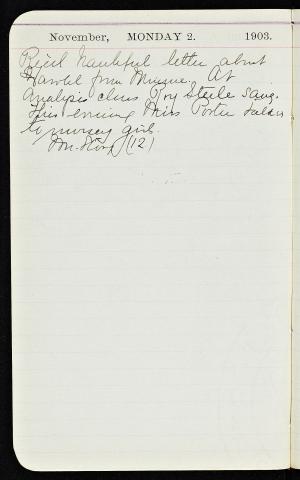 November, MONDAY 2. 1903.
Rec'd letter about
Harold from Minnie. At
Analysis class Roy Steele sang.
This evening Miss Porter talks
to nursery girls.
(12)